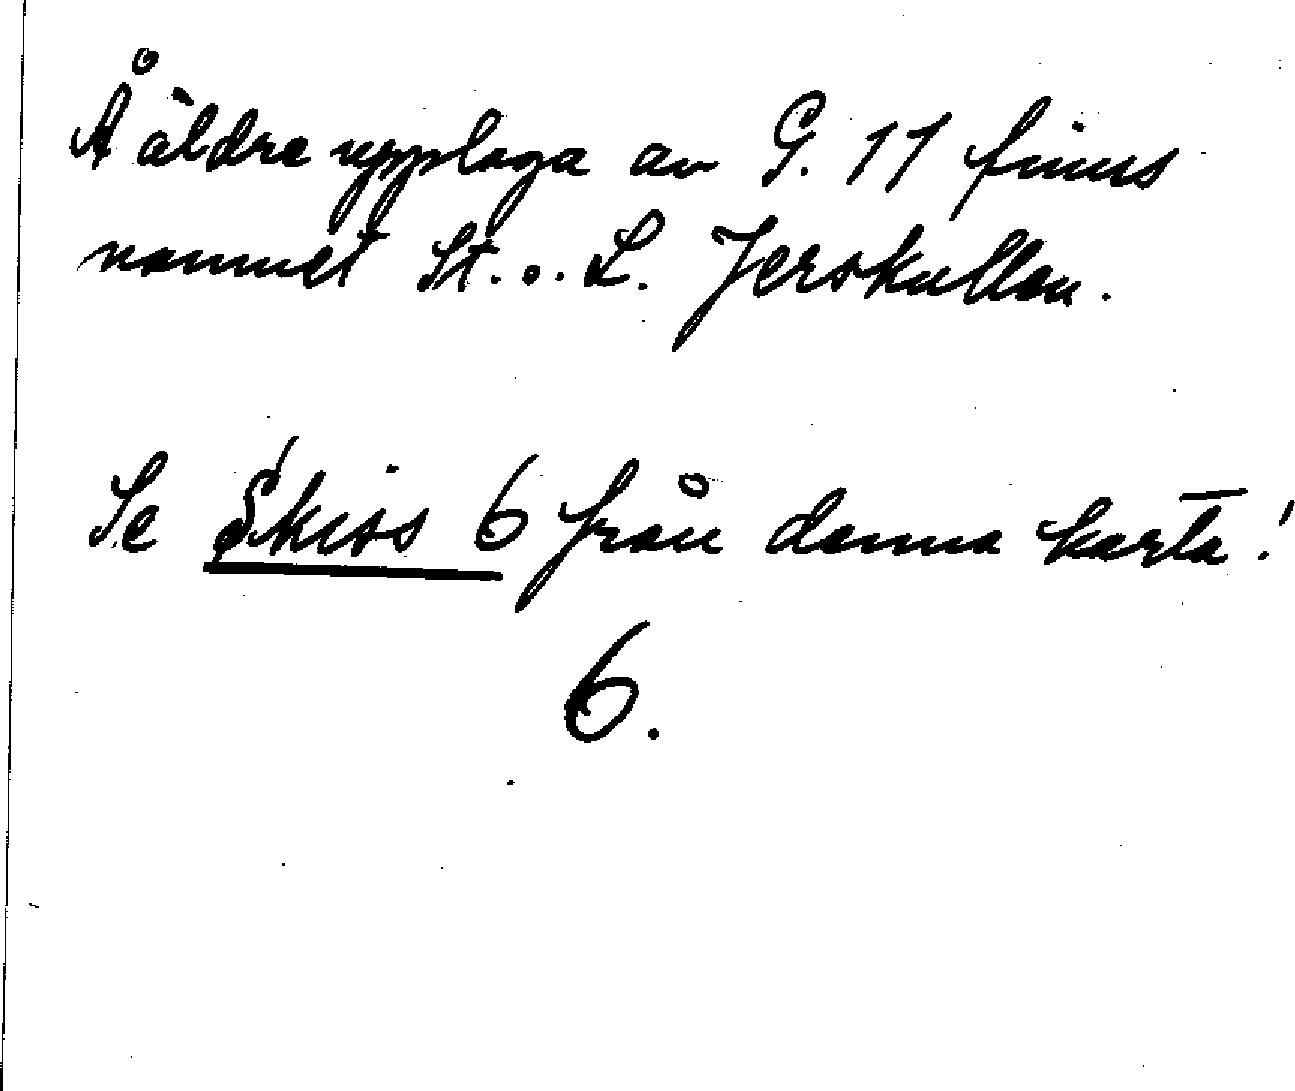 Å äldre upplaga av G. 11 finns
namnet St. o. L. Jerskullen.
Se Skiss 6 från denna karta!
6.